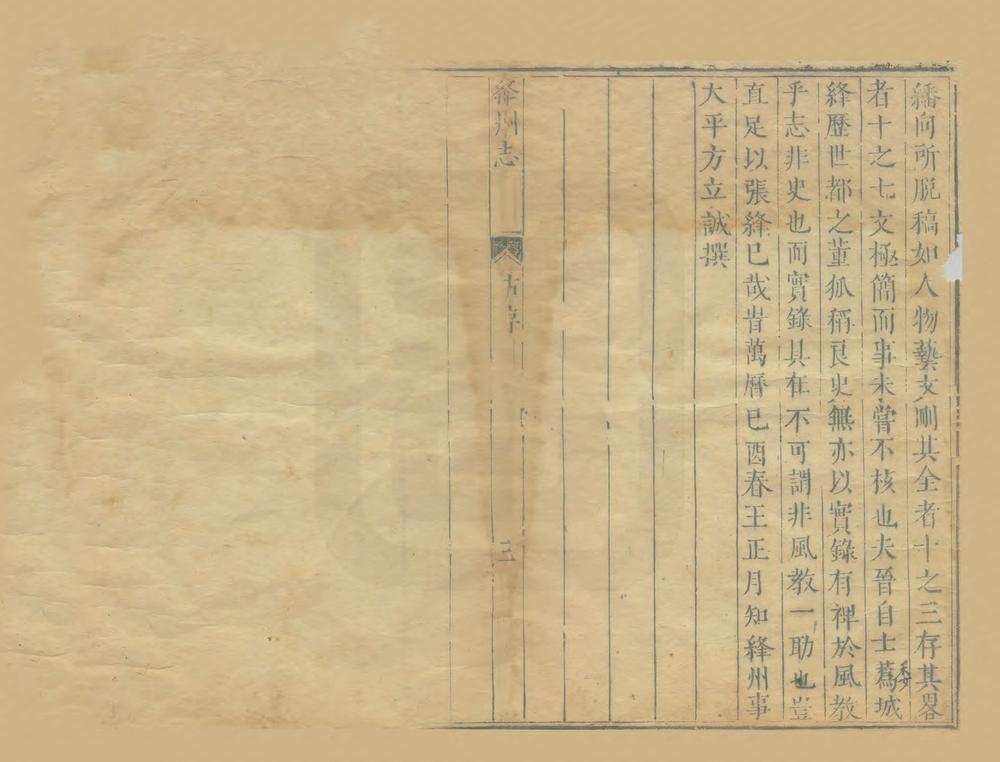 繙向所脫稿如人物藝文刪其全者十之三存其畧
者十之七文極簡而事未嘗不核也夫晉自士蒍城
絳歷世都之董狐稱良史無亦以實錄有裨於風教
乎志非史也而實錄具在不可謂非風教一助也豈
直足以張絳已哉旹萬曆己酉春王正月知絳州事
大平方立誠撰
絳州志
古序
三